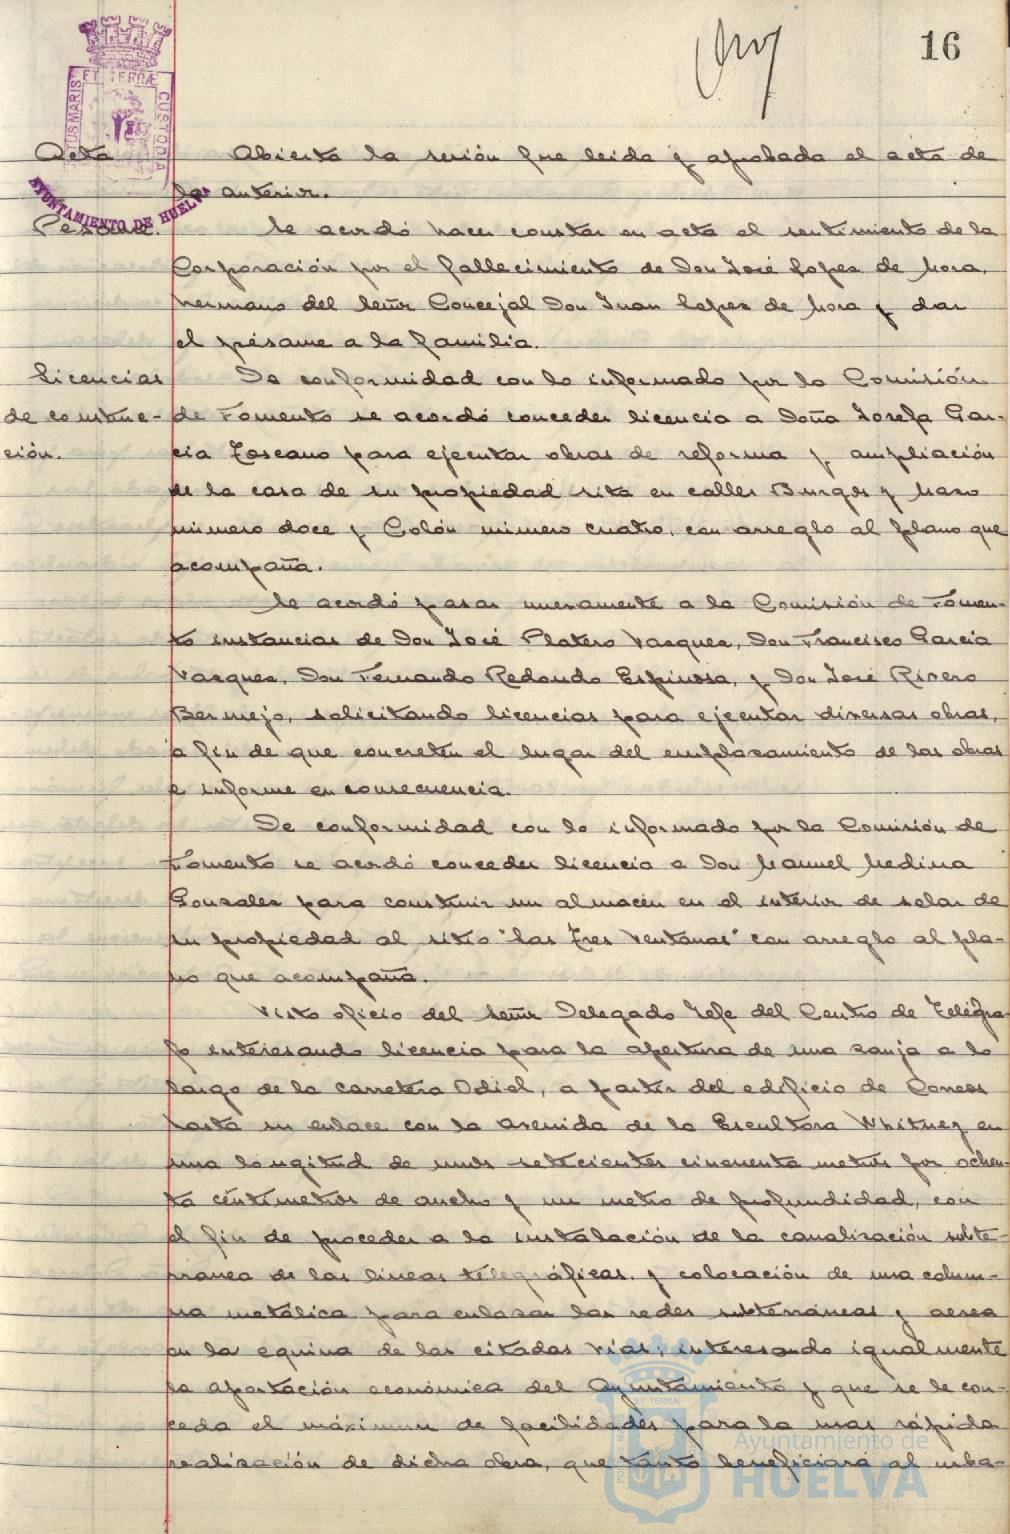 16
ET TERRÆ
CUSTODIA
AYUNTAMIENTO DE HUELVA
Acta
Abierta la sesión fue leida y aprobada el acta de
la anterior.
Pésame.
Se acordó hacer constar en acta el sentimiento de la
Corporación por el fallecimiento de Don José Lopez de Mora,
hermano del Señor Concejal Don Juan Lopez de Mora y dar
el pésame a la familia.
Licencias
de construc-
ción.
De conformidad con lo informado por la Comisión
de Fomento se acordó conceder licencia a Doña Josefa Gar-
cia Toscano para ejecutar obras de reforma y ampliación
de la casa de su propiedad sita en calles Burgos y Mazo
número doce y Colón número cuatro, con arreglo al plano que
acompaña.
Se acordó pasar nuevamente a la Comisión de Fomen-
to instancias de Don José Platero Vazquez, Don Francisco Garcia
Vazquez, Don Fernando Redondo Espinosa, y Don José Rivero
Bermejo, solicitando licencias para ejecutar diversas obras,
a fin de que concreten el lugar del emplazamiento de las obras
e informe en consecuencia.
De conformidad con lo informado por la Comisión de
Fomento se acordó conceder licencia a Don Manuel Medina
Gonzalez para construir un almacén en el interior de solar de
su propiedad al sitio "Las Tres Ventanas" con arreglo al pla-
no que acompaña.
Visto oficio del Señor Delegado Jefe del Centro de Telégra-
fo interesando licencia para la apertura de una zanja a lo
largo de la carretera Odiel, a partir del edificio de Correos
hasta su enlace con la avenida de la Escultora Whitney en
una longitud de unos setecientos cincuenta metros por ochen-
ta céntimetros de ancho y un metro de profundidad, con
el fin de proceder a la instalación de la canalización subte-
rranea de las lineas telegráficas, y colocación de una colum-
na metálica para enlazar las redes subterráneas y aerea
en la equina de las citadas vias; interesando igualmente
la aportación económica del Ayuntamiento y que se le con-
ceda el máximun de facilidades para la mas rápida
realización de dicha obra, que tanto beneficiara al urba-
Ayuntamiento de
HUELVA